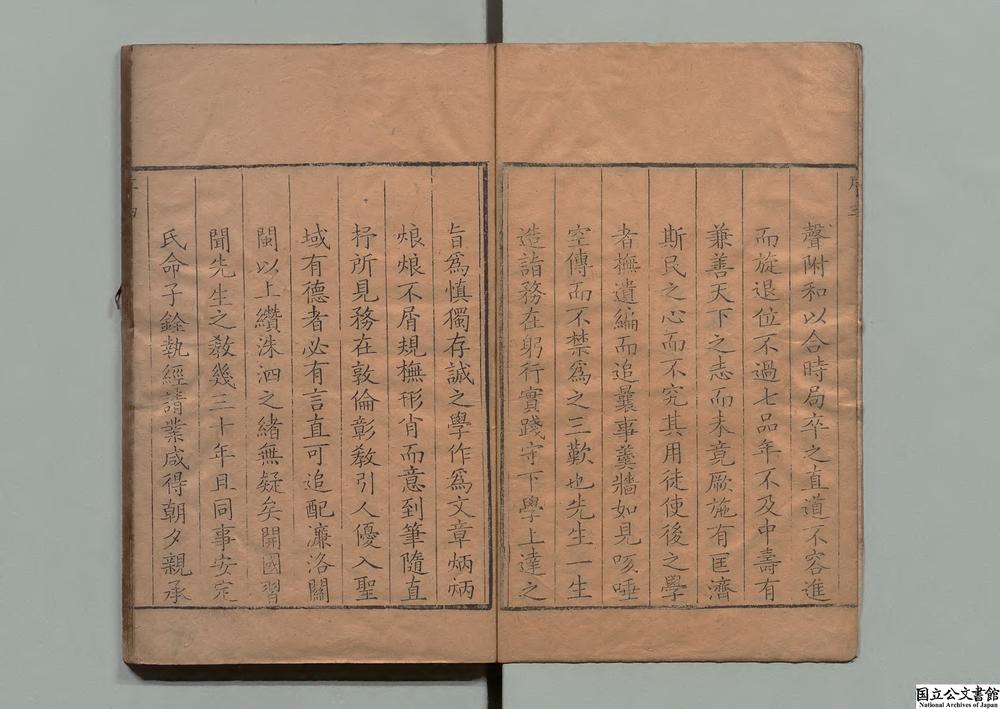 聲附和以合時局卒之直道不容進
而旋退位不過七品年不及中壽有
兼善天下之志而未竟厥施有匡濟
斯民之心而不究其用徒使後之學
者撫遺編而追曩事羹牆如見咳唾
空傳而不禁爲之三歎也先生一生
造詣務在躬行實踐守下學上達之
旨爲慎獨存誠之學作爲文章炳炳
烺烺不屑規橅形肖而意到筆隨直
抒所見務在敦倫彰教引人優入聖
域有德者必有言直可追配濂洛關
閩以上纘洙泗之緒無疑矣開國習
聞先生之教幾三十年且同事安定
氏命子銓執經請業咸得朝夕親承
国立公文書館
National Archives of Japan